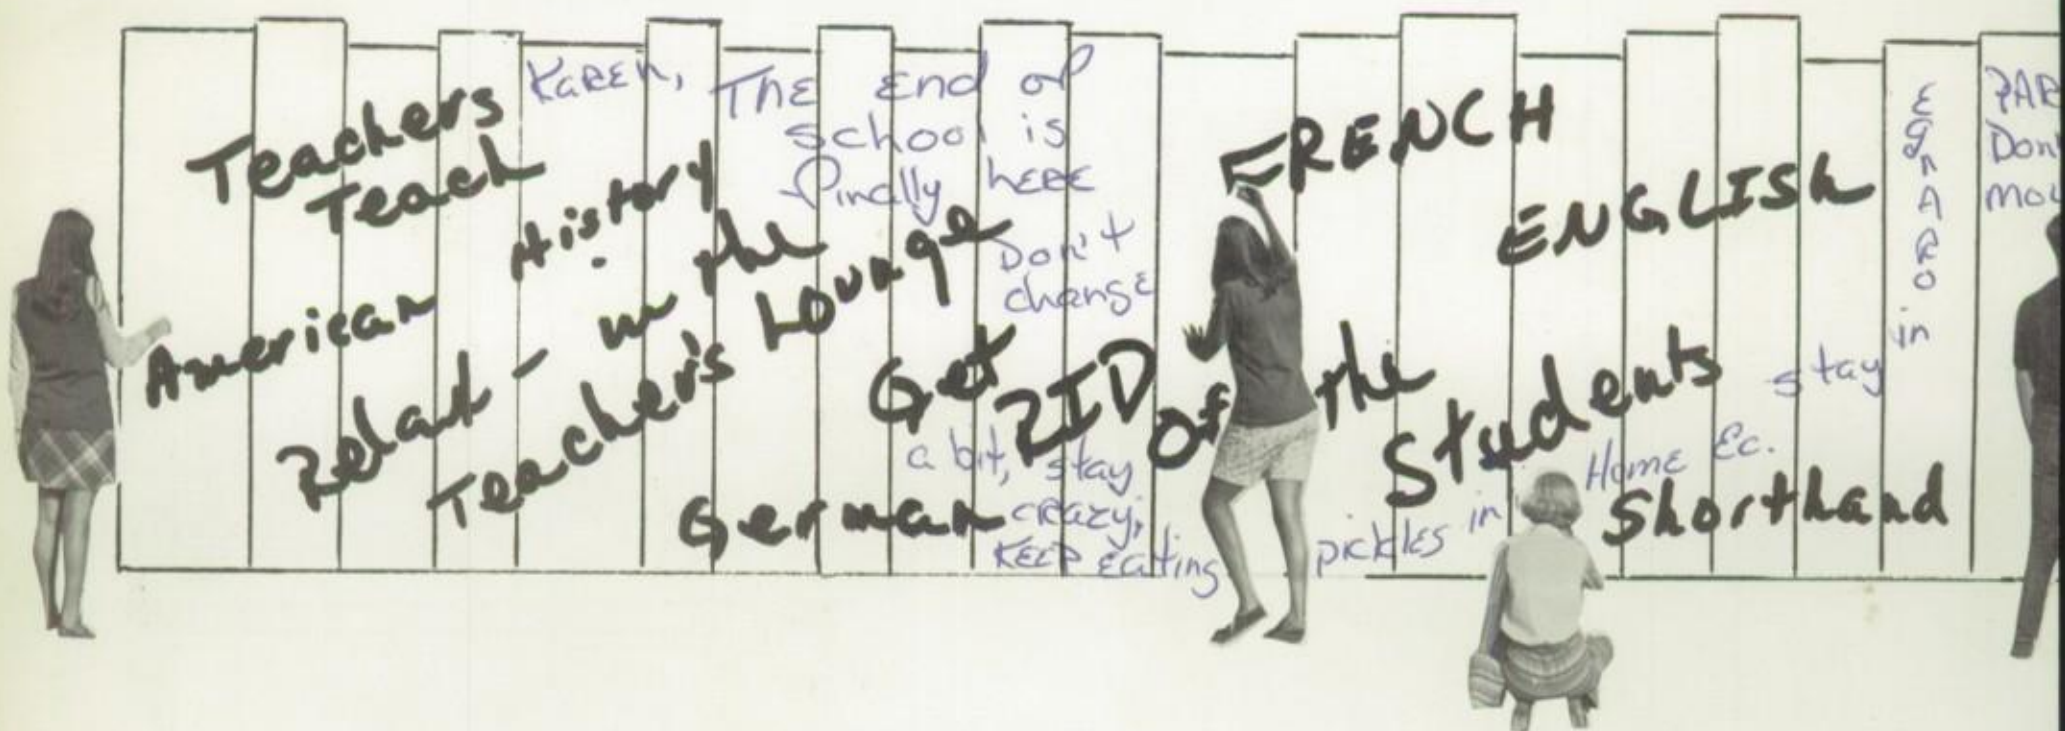 Teachers
Teach
American History
Relax - in the
Teacher's Lounge
Get RID of the
Students
German
FRENCH
ENGLISh
Shorthand
Karen, The End of
school is
finally here
Don't
change
a bit, stay
crazy,
KEEP Eating pickles in Home Ec.
stay in